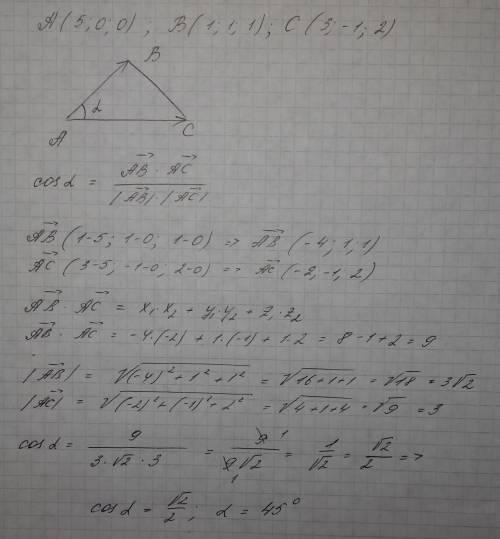 A(5;0;0); B(1;1;1); C(3;-1;2)
B
α
A C
cosα = AB⃗ · AC⃗ / |AB⃗|·|AC⃗|
AB⃗ (1-5; 1-0; 1-0) => AB⃗ (-4; 1; 1)
AC⃗ (3-5; -1-0; 2-0) => AC⃗ (-2, -1, 2)
AB⃗ · AC⃗ = x₁·x₂ + y₁·y₂ + z₁·z₂
AB⃗ · AC⃗ = -4·(-2) + 1·(-1) + 1·2 = 8-1+2 = 9
|AB⃗| = √((-4)²+1²+1²) = √(16+1+1) = √18 = 3√2
|AC⃗| = √((-2)²+(-1)²+2²) = √(4+1+4) = √9 = 3
cosα = 9 / (3·√2·3) = 9 1 / 9 1 √2 = 1/√2 = √2/2 =>
cosα = √2/2; α = 45°